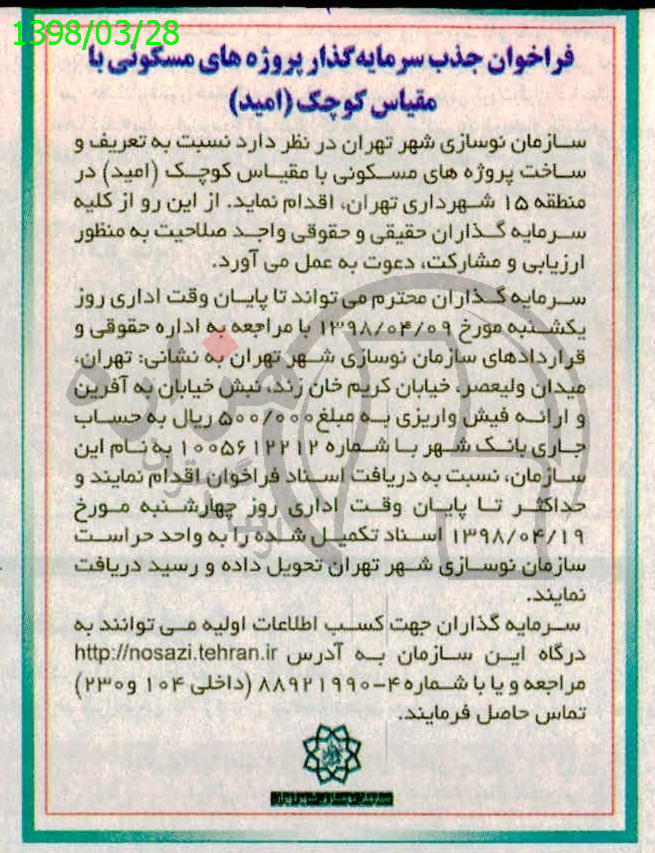 1398/03/28
فراخوان جذب سرمایه‌گذار پروژه های مسکونی با
مقیاس کوچک (امید)
سازمان نوسازی شهر تهران در نظر دارد نسبت به تعریف و
ساخت پروژه های مسکونی با مقیاس کوچک (امید) در
منطقه ۱۵ شهرداری تهران، اقدام نماید. از این رو از کلیه
سرمایه گذاران حقیقی و حقوقی واجد صلاحیت به منظور
ارزیابی و مشارکت، دعوت به عمل می آورد.
سرمایه گذاران محترم می تواند تا پایان وقت اداری روز
یکشنبه مورخ ۱۳۹۸/۰۴/۰۹ با مراجعه به اداره حقوقی و
قراردادهای سازمان نوسازی شهر تهران به نشانی: تهران،
میدان ولیعصر، خیابان کریم خان زند، نبش خیابان به آفرین
و ارائه فیش واریزی به مبلغ ۵۰۰/۰۰۰ ریال به حساب
جاری بانک شهر با شماره ۱۰۰۵۶۱۲۲۱۲ به نام این
سازمان، نسبت به دریافت اسناد فراخوان اقدام نمایند و
حداکثر تا پایان وقت اداری روز چهارشنبه مورخ
۱۳۹۸/۰۴/۱۹ اسناد تکمیل شده را به واحد حراست
سازمان نوسازی شهر تهران تحویل داده و رسید دریافت
نمایند.
سرمایه گذاران جهت کسب اطلاعات اولیه می توانند به
درگاه این سازمان به آدرس http://nosazi.tehran.ir
مراجعه و یا با شماره ۴-۸۸۹۲۱۹۹۰ (داخلی ۱۰۴ و ۲۳۰)
تماس حاصل فرمایند.
سازمان نوسازی شهر تهران